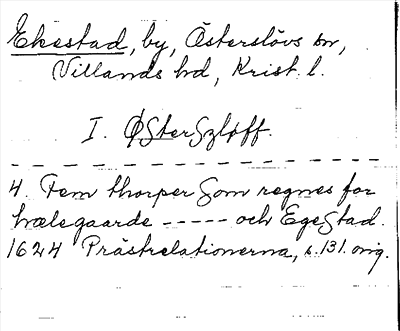 Ekestad, by, Österslövs sn,
Villands hd, Krist. l.
I. ØsterSzloff.
4. Fem thorper Som regnes for
hælegaarde ----- och EgeStad.
1624 Prästrelationerna, s. 131. orig.